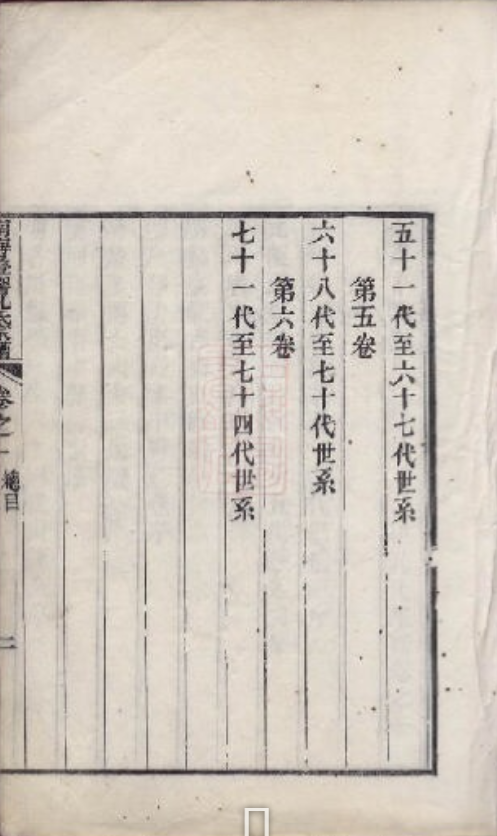 五十一代至六十七代世系
第五卷
六十八代至七十代世系
第六卷
七十一代至七十四代世系
卷之一
總目
二